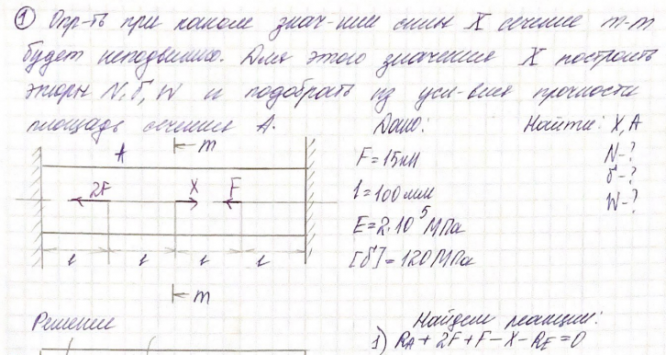 ① Опр-ть при каком знач-нии силы X сечение m-m
будет неподвижно. Для этого значения X построить
эпюры N, б, W и подобрать из усл-вия прочности
площадь сечения A.
Дано:
Найти: X, A
F = 15кН
N-?
l = 100мм
б-?
E = 2·10⁵МПа
W-?
[б] = 120МПа
A
m
2F
X
F
l
l
l
l
m
Решение
Найдем реакции:
1) R_A + 2F + F - X - R_E = 0